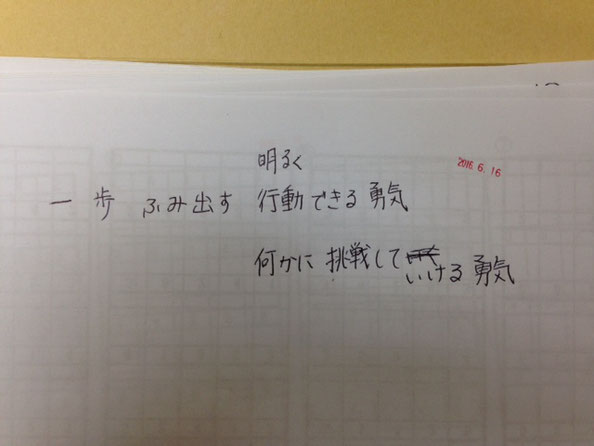 明るく
2016. 6. 16
一歩 ふみ出す 行動できる勇気
何かに挑戦していける勇気